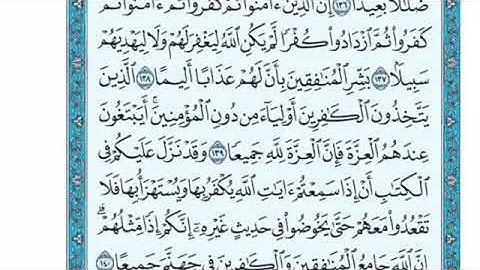 ضَلَٰلًۢا بَعِيدًا ١٣٦ إِنَّ ٱلَّذِينَ ءَامَنُوا۟ ثُمَّ كَفَرُوا۟ ثُمَّ ءَامَنُوا۟ ثُمَّ
كَفَرُوا۟ ثُمَّ ٱزْدَادُوا۟ كُفْرًا لَّمْ يَكُنِ ٱللَّهُ لِيَغْفِرَ لَهُمْ وَلَا لِيَهْدِيَهُمْ
سَبِيلًۢا ١٣٧ بَشِّرِ ٱلْمُنَٰفِقِينَ بِأَنَّ لَهُمْ عَذَابًا أَلِيمًا ١٣٨ ٱلَّذِينَ
يَتَّخِذُونَ ٱلْكَٰفِرِينَ أَوْلِيَآءَ مِن دُونِ ٱلْمُؤْمِنِينَ ۚ أَيَبْتَغُونَ
عِندَهُمُ ٱلْعِزَّةَ فَإِنَّ ٱلْعِزَّةَ لِلَّهِ جَمِيعًا ١٣٩ وَقَدْ نَزَّلَ عَلَيْكُمْ فِى
ٱلْكِتَٰبِ أَنْ إِذَا سَمِعْتُمْ ءَايَٰتِ ٱللَّهِ يُكْفَرُ بِهَا وَيُسْتَهْزَأُ بِهَا فَلَا
تَقْعُدُوا۟ مَعَهُمْ حَتَّىٰ يَخُوضُوا۟ فِى حَدِيثٍ غَيْرِهِۦٓ ۚ إِنَّكُمْ إِذًا مِّثْلُهُمْ ۗ
إِنَّ ٱللَّهَ جَامِعُ ٱلْمُنَٰفِقِينَ وَٱلْكَٰفِرِينَ فِى جَهَنَّمَ جَمِيعًا ١٤٠